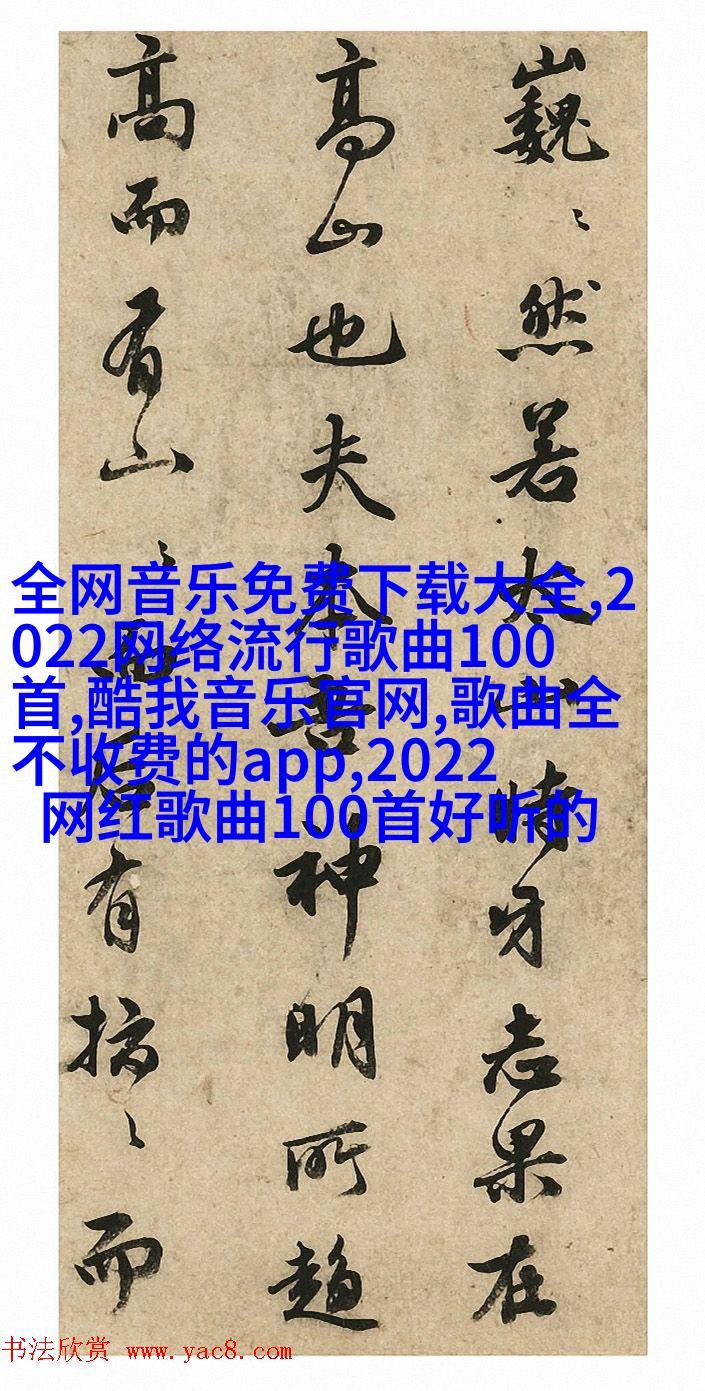 巍〻然若太山時牙志果在
高山也夫本吾神明所趨
高而有山〻后有〻而
全网音乐免费下载大全,2
022网络流行歌曲100
首,酷我音乐官网,歌曲全
不收费的app,2022
网红歌曲100首好听的
书法欣赏 www.yac8.com